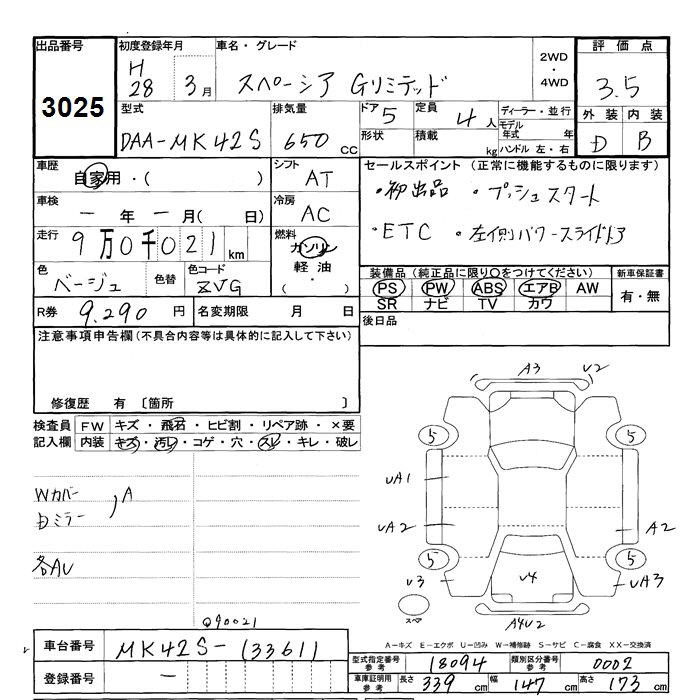 出品番号
3025
初度登録年月
H
28 3月
車名・グレード
スペーシア Gリミテッド
2WD
・
4WD
評価点
3.5
外装 内装
D B
型式
DAA-MK42S
排気量
650 CC
ドア 5
形状
定員 4 人
積載 kg
ディーラー・並行
モデル年式 年
ハンドル 左・右
車歴
自家用・( )
シフト
AT
車検
ー 年 ー 月( 日)
冷房
AC
走行
9万0千021 km
燃料
ガソリン
軽油
( ・ )
色
ベージュ
色替
色コード
ZVG
R券 9.290 円
名変期限 月 日
セールスポイント (正常に機能するものに限ります)
・初出品 ・プッシュスタート
・ETC ・左側パワースライドドア
装備品(純正品に限り○をつけてください)
PS PW ABS エアB AW
SR ナビ TV カワ
新車保証書
有・無
後日品
注意事項申告欄(不具合内容等は具体的に記入して下さい)
修復歴 有 〔箇所 〕
検査員 FW キズ・飛石・ヒビ割・リペア跡・×要
記入欄 内装 キズ・汚レ・コゲ・穴・スレ・キレ・破レ
Wカバー
Dミラー
, A
各AU
Q90021
A3 U2
5 5
UA1
UA2 A2
5 5
U3 U4 UA3
スペア
A4U2
A-キズ E-エクボ U-凹み W-補修跡 S-サビ C-腐食 XX-交換済
車台番号 MK42S-133611
登録番号 ー
型式指定番号 参考 18094
類別区分番号 参考 0002
車庫証明用 参考 長さ 339 cm 幅 147 cm 高さ 173 cm